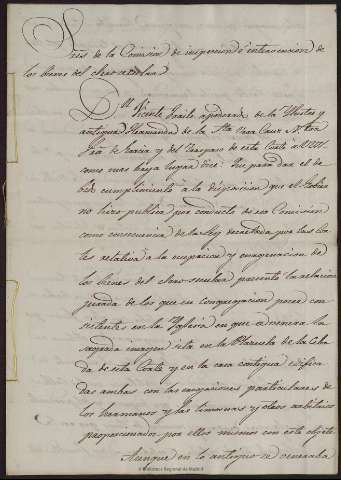 Sres de la Comision de inspeccion é intervencion de
los bienes del clero secular
Dn Vicente Fraile apoderado de la Ilustre y
antigua Hermandad de la Sta Vera Cruz Ntra
Sra de Gracia y del Traspaso de esta Corte á VSS.
como mas haya lugar dice: Que para dar el de
bido cumplimiento á la disposicion que el Gobier
no hizo publica por conducto de esa Comision
como consecuencia de la Ley decretada por las Cor
tes relativa á la ocupacion y enagenacion de
los bienes del clero secular presenta la relacion
jurada de los que su Congregacion posee con
sistentes en la Iglesia en que se venera la
sagrada imagen sita en la Plazuela de la Ceba
da de esta Corte y en la casa contigua edifica
das ambas con las erogaciones particulares de
los hermanos y las limosnas y otros arbitrios
proporcionados por ellos mismos con este objeto
Aunque en lo antiguo se veneraba
Biblioteca Regional de Madrid